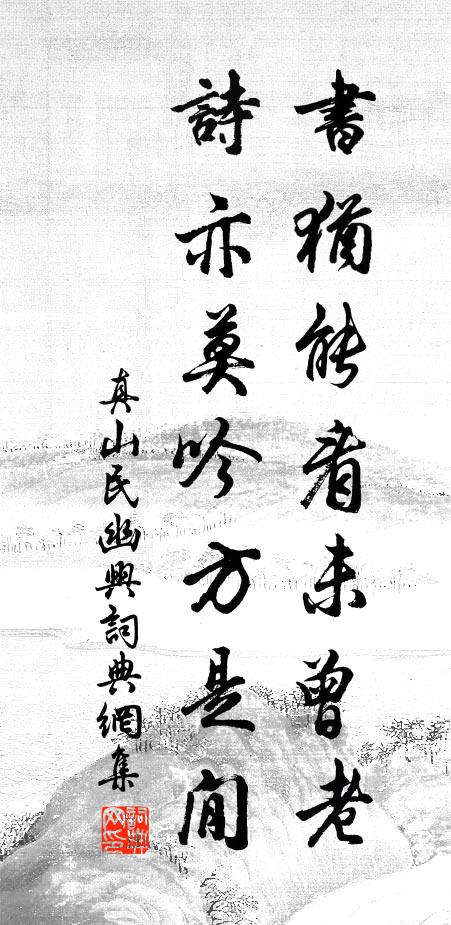 書猶能看未曾老
詩亦莫吟方是閒
真山民幽興詞典網集
詞典網印